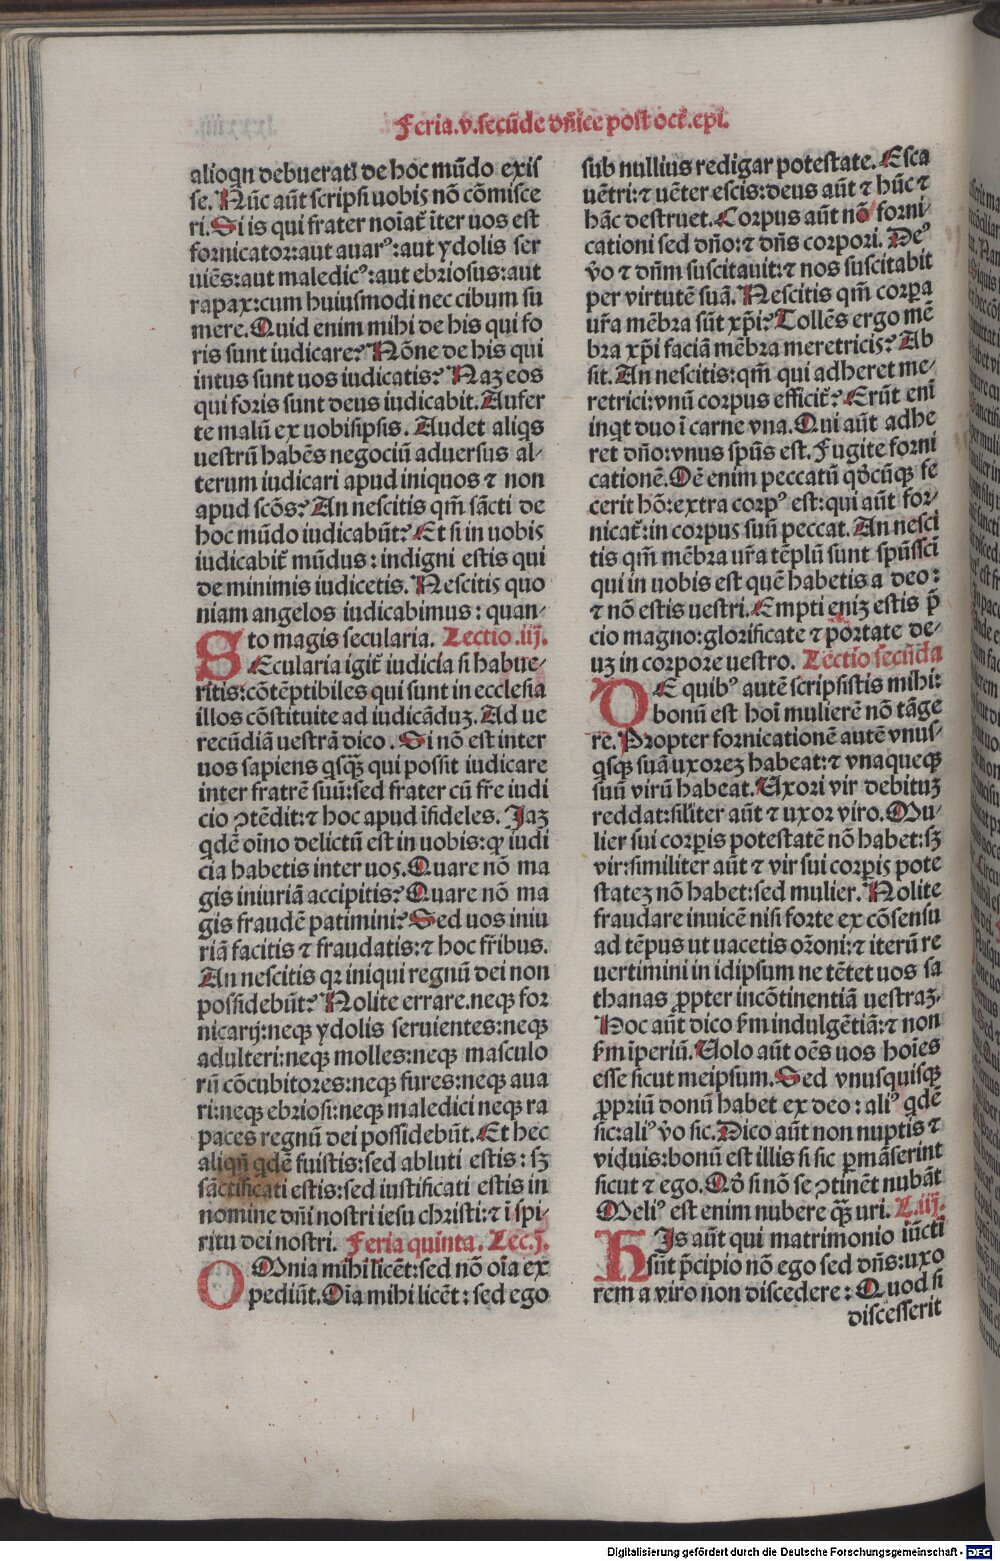 Feria.v.secūde dn̄ice post oct̄.epī.
alioqn debueratꝭ de hoc mūdo exis
se. Nūc aūt scripsi uobis nō cōmisce
ri. Si is qui frater noīat̄ īter uos est
fornicator:aut auarꝰ:aut ydolis ser
uiēs:aut maledicꝰ:aut ebriosus:aut
rapax:cum huiusmodi nec cibum su
mere. Quid enim mihi de his qui fo
ris sunt iudicare? Nōne de his qui
intus sunt uos iudicatis? Naꝫ eos
qui foris sunt deus iudicabit. Aufer
te malū ex uobisipsis. Audet aliqs
uestrū habēs negociū aduersus al-
terum iudicari apud iniquos ⁊ non
apud scōs? An nescitis qm̄ sācti de
hoc mūdo iudicabūt? Et si in uobis
iudicabit̄ mūdus : indigni estis qui
de minimis iudicetis. Nescitis quo
niam angelos iudicabimus : quan-
to magis secularia. Lectio .iij.
SEcularia igit̄ iudicia si habue-
ritis:cōtēptibiles qui sunt in ecclesia
illos cōstituite ad iudicāduꝫ. Ad ue
recūdiā uestrā dico . Si nō est inter
uos sapiens qsꝗ̄ qui possit iudicare
inter fratrē suū:sed frater cū fr̄e iudi
cio ↄtēdit:⁊ hoc apud īfideles. Jaꝫ
qdē oīno delictū est in uobis:ꝙ iudi
cia habetis inter uos. Quare nō ma
gis iniuriā accipitis? Quare nō ma
gis fraudē patimini? Sed uos iniu
riā facitis ⁊ fraudatis:⁊ hoc fr̄ibus.
An nescitis qꝛ iniqui regnū dei non
possidebūt? Nolite errare.neqꝫ for
nicarij:neqꝫ ydolis seruientes:neqꝫ
adulteri:neqꝫ molles:neqꝫ masculo
rū cōcubitores:neqꝫ fures:neqꝫ aua
ri:neqꝫ ebriosi:neqꝫ maledici neqꝫ ra
paces regnū dei possidebūt. Et hec
aliqn̄ qdē fuistis:sed abluti estis : sꝫ
sāctificati estis:sed iustificati estis in
nomine dn̄i nostri iesu christi:⁊ ī spi-
ritu dei nostri. Feria quinta. Lec.j.
OMnia mihi licēt:sed nō oīa ex
pediūt. Oīa mihi licēt : sed ego
sub nullius redigar potestate. Esca
uētri:⁊ uēter escis:deus aūt ⁊ hūc ⁊
hāc destruet. Corpus aūt nō forni-
cationi sed dn̄o:⁊ dn̄s corpori. Deꝰ
v̄o ⁊ dn̄m suscitauit:⁊ nos suscitabit
per virtutē suā. Nescitis qm̄ corꝑa
ur̄a mēbra sūt xp̄i? Tollēs ergo mē
bra xp̄i faciā mēbra meretricis? Ab
sit. An nescitis:qm̄ qui adheret me-
retrici:vnū corpus efficit̄? Erūt enī
inqt duo ī carne vna. Qui aūt adhe
ret dn̄o:vnus spūs est. Fugite forni
cationē. Oē enim peccatū qd̓cūqꝫ fe
cerit hō:extra corpꝰ est:qui aūt for-
nicat̄:in corpus suū peccat. An nesci
tis qm̄ mēbra ur̄a tēplū sunt spūssci
qui in uobis est quē habetis a deo:
⁊ nō estis uestri. Empti eniꝫ estis p̄
cio magno:glorificate ⁊ portate de-
uꝫ in corpore uestro. Lectio secūda
DE quibꝰ autē scripsistis mihi:
bonū est hoī mulierē nō tāge
re. Propter fornicationē autē vnus-
qsqꝫ suā uxoreꝫ habeat:⁊ vnaqueqꝫ
suū virū habeat. Uxori vir debituꝫ
reddat:siliter aūt ⁊ uxor viro. Mu-
lier sui corꝑis potestatē nō habet:sꝫ
vir:similiter aūt ⁊ vir sui corꝑis pote
stateꝫ nō habet:sed mulier. Nolite
fraudare inuicē nisi forte ex cōsensu
ad tēpus ut uacetis or̄oni:⁊ iterū re
uertimini in idipsum ne tētet uos sa
thanas ꝓpter incōtinentiā uestraꝫ.
Hoc aūt dico ẜm indulgētiā:⁊ non
ẜm īperiū. Uolo aūt oēs uos hoīes
esse sicut meipsum. Sed vnusquisqꝫ
ꝓpriū donū habet ex deo : aliꝰ qdē
sic:aliꝰ v̄o sic. Dico aūt non nuptis ⁊
viduis:bonū est illis si sic ꝑmāserint
sicut ⁊ ego. Qd̓ si nō se ↄtinēt nubāt
Meliꝰ est enim nubere ꝗ̄ uri. L.iij.
HIs aūt qui matrimonio iūcti
sūt p̄cipio nō ego sed dn̄s:uxo
rem a viro non discedere : Quod si
discesserit
Digitalisierung gefördert durch die Deutsche Forschungsgemeinschaft - DFG